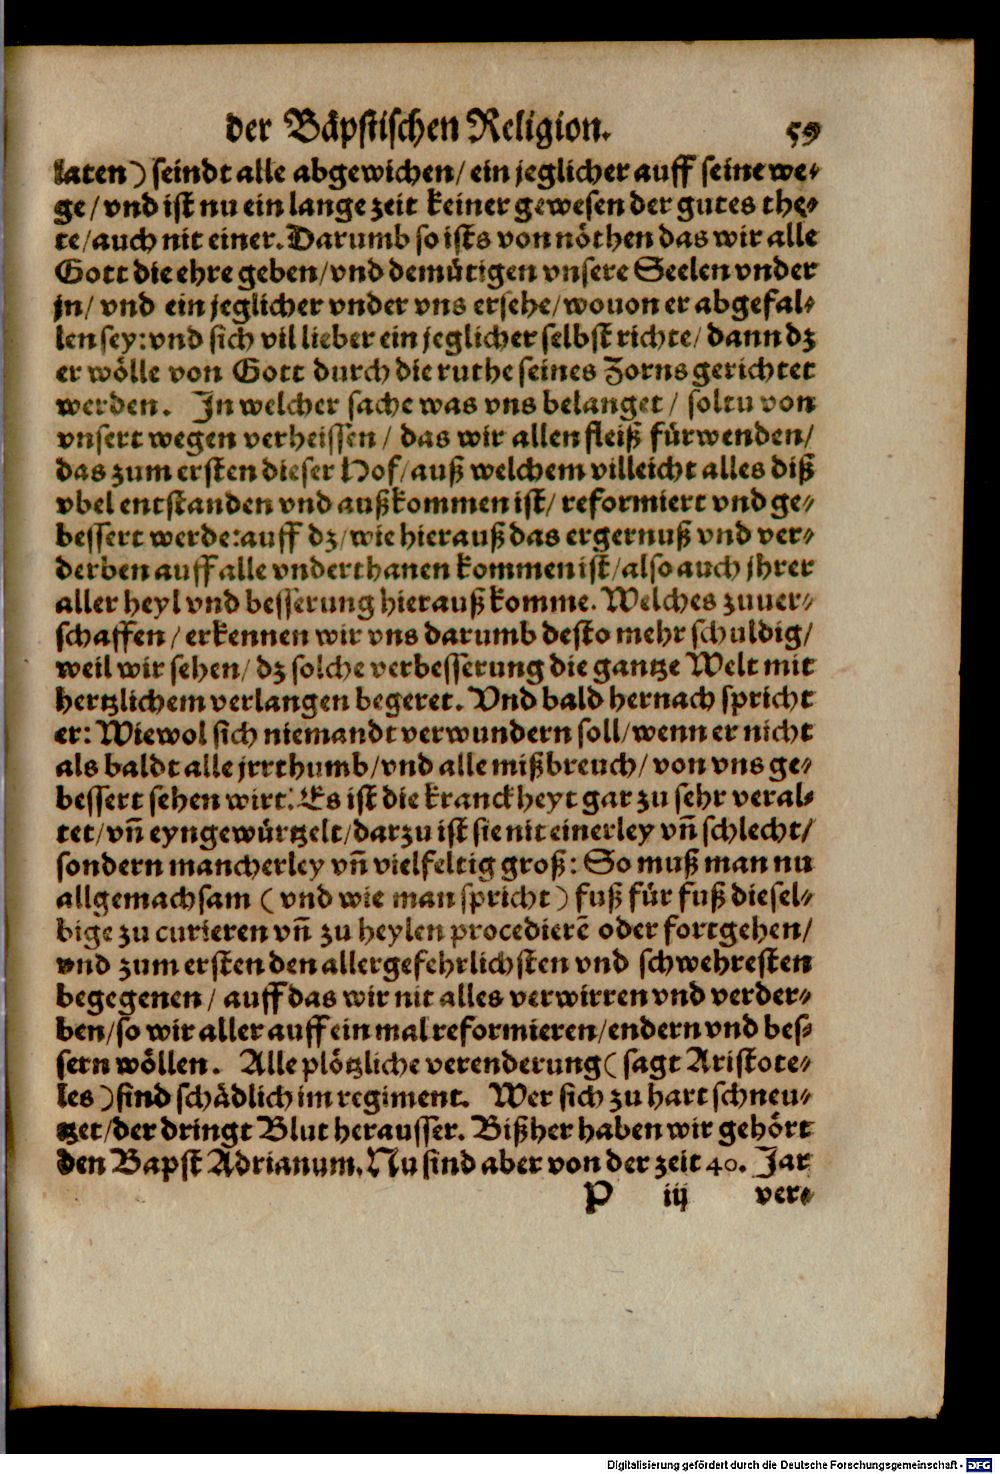 der Bäpstischen Religion. 59
laten) seindt alle abgewichen/ ein jeglicher auff seine we-
ge/ vnd ist nu ein lange zeit keiner gewesen der gutes the-
te/ auch nit einer. Darumb so ists von nöthen das wir alle
Gott die ehre geben/ vnd demütigen vnsere Seelen vnder
jn/ vnd ein jeglicher vnder vns ersehe/ wouon er abgefal-
len sey: vnd sich vil lieber ein jeglicher selbst richte/ dann dz
er wölle von Gott durch die ruthe seines Zorns gerichtet
werden. In welcher sache was vns belanget/ soltu von
vnsert wegen verheissen/ das wir allen fleiß fürwenden/
das zum ersten dieser Hof/ auß welchem villeicht alles diß
vbel entstanden vnd außkommen ist/ reformiert vnd ge-
bessert werde: auff dz/ wie hierauß das ergernuß vnd ver-
derben auff alle vnderthanen kommen ist/ also auch jhrer
aller heyl vnd besserung hierauß komme. Welches zuuer-
schaffen/ erkennen wir vns darumb desto mehr schuldig/
weil wir sehen/ dz solche verbesserung die gantze Welt mit
hertzlichem verlangen begeret. Vnd bald hernach spricht
er: Wiewol sich niemandt verwundern soll/ wenn er nicht
als baldt alle jrrthumb/ vnd alle mißbreuch/ von vns ge-
bessert sehen wirt. Es ist die kranckheyt gar zu sehr veral-
tet/ vñ eyngewürtzelt/ darzu ist sie nit einerley vñ schlecht/
sondern mancherley vñ vielfeltig groß: So muß man nu
allgemachsam (vnd wie man spricht) fuß für fuß diesel-
bige zu curieren vñ zu heylen procedierē oder fortgehen/
vnd zum ersten den allergefehrlichsten vnd schwehresten
begegenen/ auff das wir nit alles verwirren vnd verder-
ben/ so wir aller auff ein mal reformieren/ endern vnd bes-
sern wöllen. Alle plötzliche verenderung (sagt Aristote-
les) sind schädlich im regiment. Wer sich zu hart schneu-
tzet/ der dringt Blut herausser. Bißher haben wir gehört
den Bapst Adrianum. Nu sind aber von der zeit 40. Jar
P iij ver-
Digitalisierung gefördert durch die Deutsche Forschungsgemeinschaft - DFG